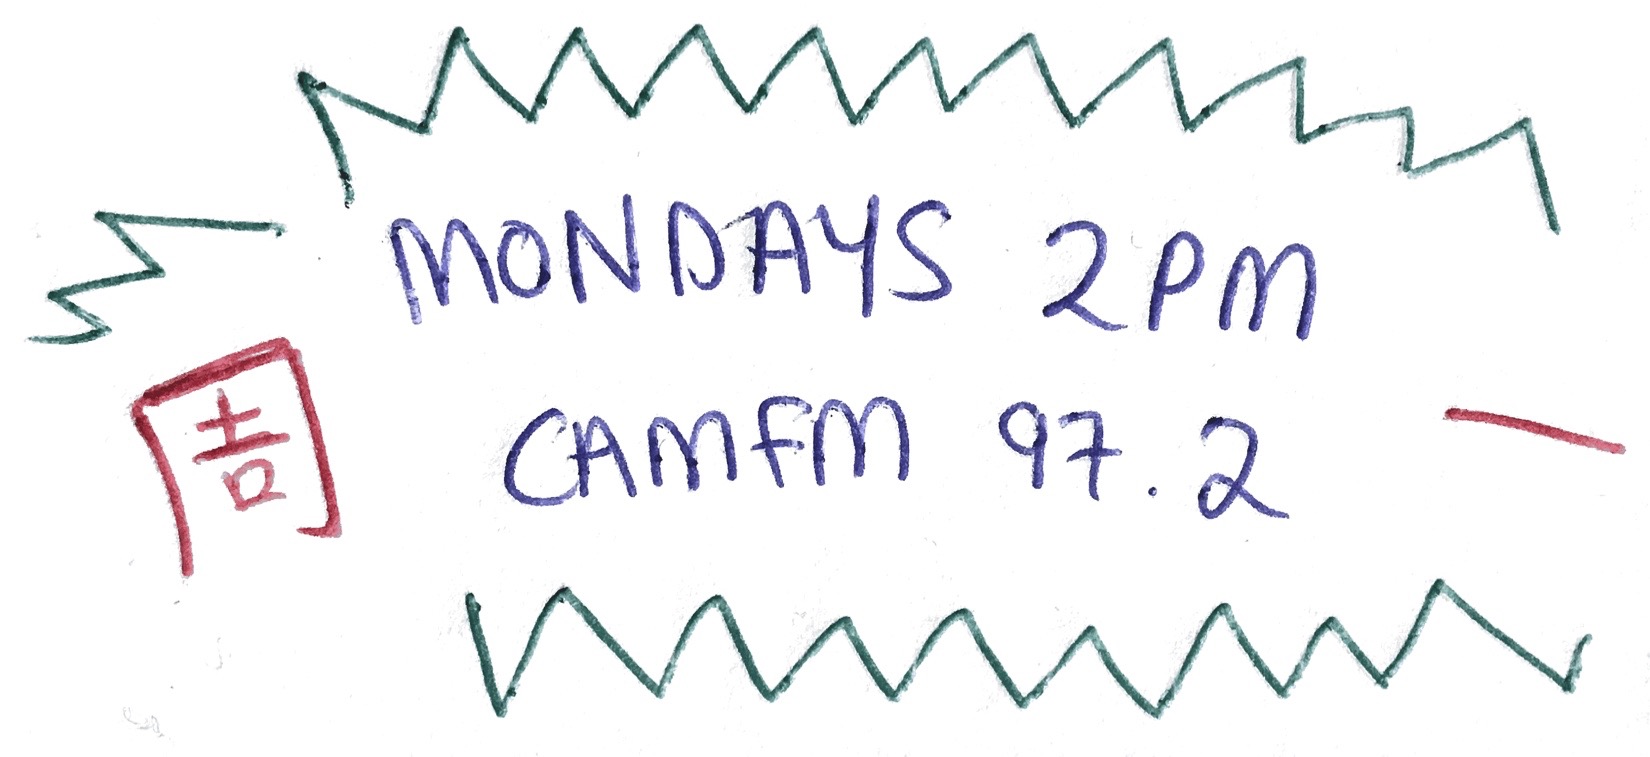 MONDAYS 2PM
周 CAMFM 97.2 一